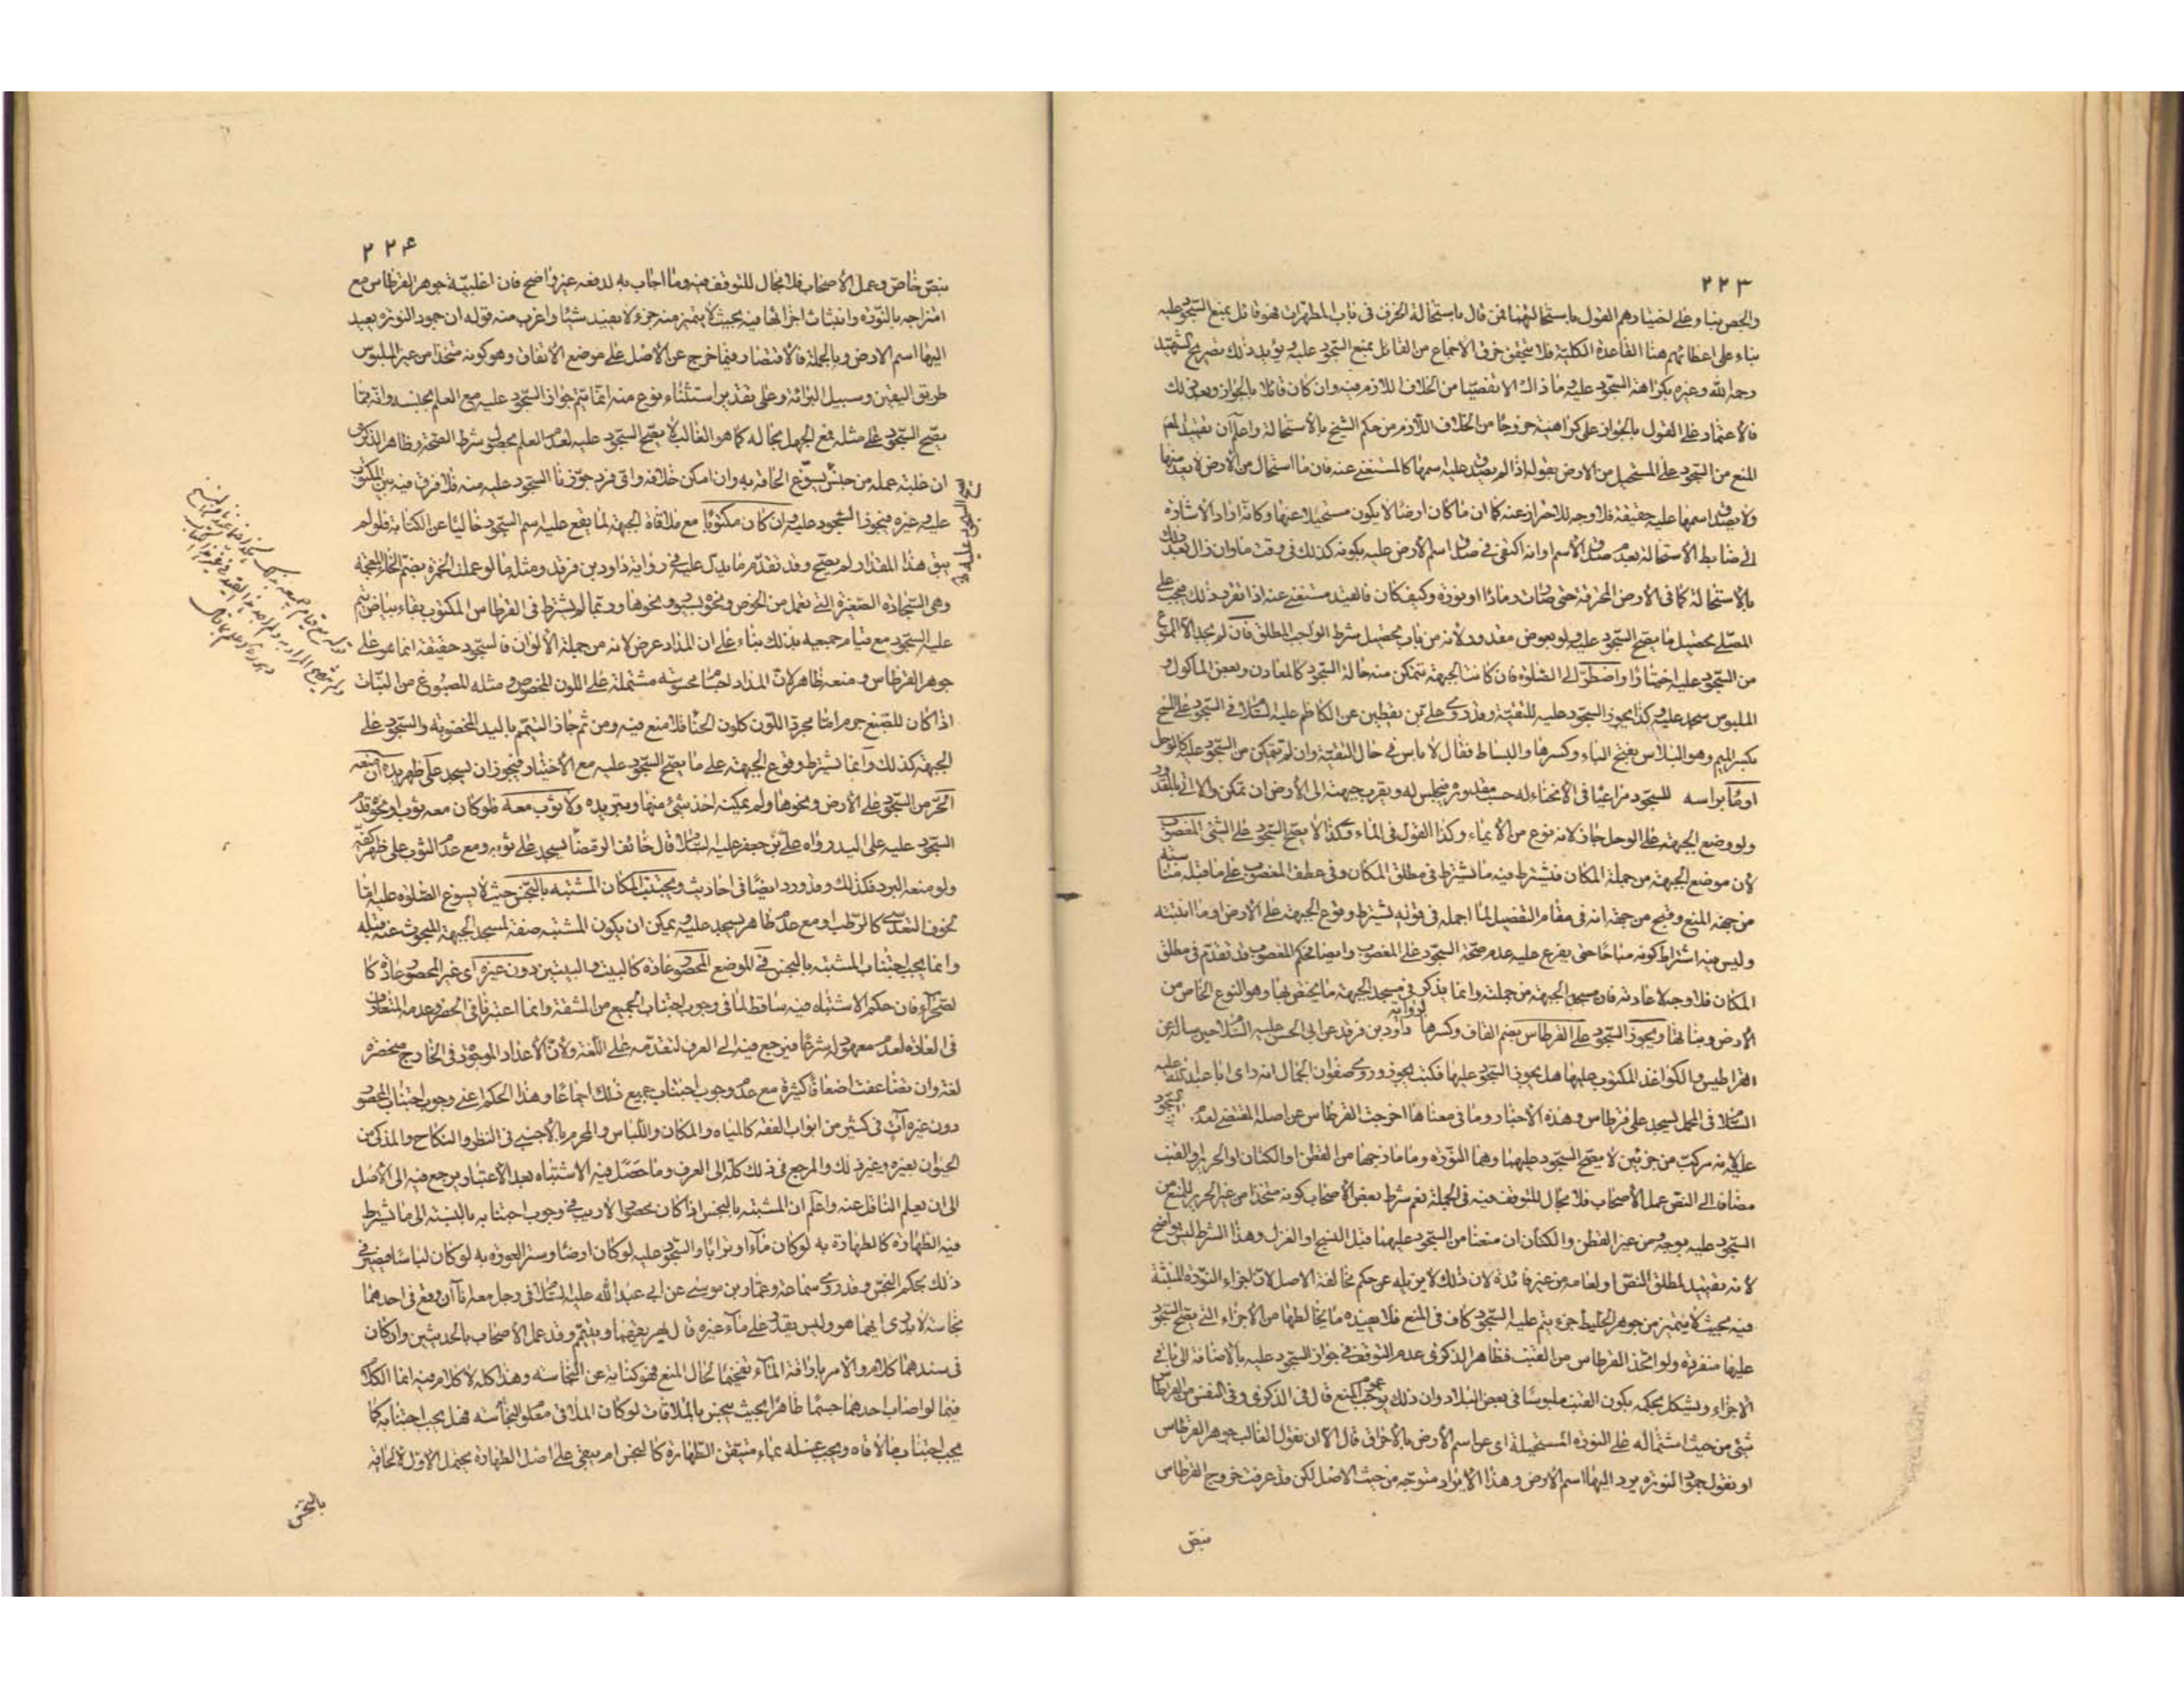 ٢٢٣
والجص بناء وعلى اختيارهم القول باستحالتهما فمن قال باستحالة الخزف في باب المطهرات فهو قائل بمنع السجود عليه
بناء على اعطائهم هنا القاعدة الكلية فلا يتحقق خرق الاجماع من القائل بمنع السجود عليه ويؤيد ذلك تصريح الشهيد
رحمه الله وغيره بكراهة السجود عليه وما ذاك الا تفصيا من الخلاف اللازم فيه وان كان قائلا بالجواز وبعد ذلك
فالاعتماد على القول بالجواز على كراهية خروجا من الخلاف اللازم من حكم الشيخ بالاستحالة واعلم ان تقييد المص
المنع من السجود على المستحيل من الارض بقوله اذا لم يصدق عليه اسمها كالمستغنى عنه فان ما استحال من الارض لا يعد منها
ولا يصدق اسمها عليه حقيقة فلا وجه للاحتراز عنه كما ان ما كان ارضا لا يكون مستحيلا عنها وكانه اراد الاشارة
الى ضابط الاستحالة بعدم صدق الاسم وانه اكتفى في صدق اسم الارض عليه بكونه كذلك في وقت ما وان زال بعد ذلك
بالاستحالة كما في الارض المحرقة حتى صارت رمادا او نورة وكيف كان فالقيد مستغنى عنه اذا تقرر ذلك فيجب على
المصلي تحصيل ما يصح السجود عليه ولو بعوض مقدور لانه من باب تحصيل شرط الواجب المطلق فان لم يجد الا الممنوع
من السجود عليه اختيارا واضطر الى الصلوة فان كانت الجبهة تتمكن منه حالة السجود كالمعادن وبعض المأكول و
الملبوس سجد عليه وكذا يجوز السجود عليه للتقية وقد روى علي بن يقطين عن الكاظم عليه السلام في السجود على المسح
بكسر الميم وهو البلاس بفتح الباء وكسرها والبساط فقال لا باس في حال التقية وان لم تتمكن من السجود عليه كالوحل
اومأ براسه للسجود مراعيا في الانحناء له حسب مقدوره فيجلس له ويقرب جبهته الى الارض ان تمكن والا اتى بالمقدور
ولو وضع الجبهة على الوحل جاز لانه نوع من الايماء وكذا القول في الماء وكذا لا يصح السجود على الشئ المغصوب
لان موضع الجبهة من جملة المكان فيشترط فيه ما يشترط في مطلق المكان وفي عطف المغصوب على ما قبله مناسبة
من جهة المنع وقبح من جهة انه في مقام التفصيل لما اجمله في قوله يشترط وقوع الجبهة على الارض وما انبتته
وليس فيه اشتراط كونه مباحا حتى يفرع عليه عدم صحة السجود على المغصوب وايضا فحكم المغصوب قد تقدم في مطلق
المكان فلا وجه لاعادته فان مسجد الجبهة من جملته وانما يذكر في مسجد الجبهة ما يختص بها وهو النوع الخاص من
الارض ونباتها ويجوز السجود على القرطاس بضم القاف وكسرها لرواية داود بن فرقد عن ابي الحسن عليه السلام حين ساله عن
القراطيس والكواغذ المكتوب عليها هل يجوز السجود عليها فكتب يجوز وروى صفوان الجمال انه راى ابا عبد الله عليه
السلام في المحمل يسجد على قرطاس وهذه الاخبار وما في معناها اخرجت القرطاس عن اصله المقتضي لعدم السجود
عليه لانه مركب من جزئين لا يصح السجود عليهما وهما النورة وما مازجها من القطن والكتان او الحرير والقنب
مضافا الى النص عمل الاصحاب فلا مجال للتوقف فيه في الجملة نعم شرط بعض الاصحاب كونه متخذا من غير الحرير للمنع من
السجود عليه بوجه ومن غير القطن والكتان ان منعنا من السجود عليهما قبل النسج او الغزل وهذا الشرط ليس بواضح
لانه تقييد لمطلق النص او لعامه من غير فائدة لان ذلك لا يزيله عن حكم مخالفة الاصل لان اجزاء النورة المنبثة
فيه بحيث لا يتميز من جوهر الخليط جزء يتم عليه السجود كاف في المنع فلا يفيده ما يخالطها من الاجزاء التي يصح السجود
عليها منفردة ولو اتخذ القرطاس من القنب فظاهر الذكرى عدم التوقف في جواز السجود عليه بالاضافة الى باقي
الاجزاء ويشكل بحكمه بكون القنب ملبوسا في بعض البلاد وان ذلك يوجب عموم المنع قال في الذكرى وفي النفس من القرطاس
شئ من حيث اشتماله على النورة المستحيلة اى عن اسم الارض بالاحراق قال الا ان نقول الغالب جوهر القرطاس
او نقول جمود النورة يرد اليها اسم الارض وهذا الايراد متوجه من حيث الاصل لكن قد عرفت خروج القرطاس
بنص
٢٢۴
بنص خاص وعمل الاصحاب فلا مجال للتوقف فيه وما اجاب به لدفعه غير واضح فان اغلبية جوهر القرطاس مع
امتزاجه بالنورة وانبثاث اجزائها فيه بحيث لا يتميز منه جزء لا يفيد شيئا واغرب منه قوله ان جمود النورة يعيد
اليها اسم الارض وبالجملة فالاقتصار فيما خرج عن الاصل على موضع الاتفاق وهو كونه متخذا من غير الملبوس
طريق اليقين وسبيل البرائة وعلى تقدير استثناء نوع منه انما يتم جواز السجود عليه مع العلم بجنسه وانه مما
يصح السجود على مثله فمع الجهل بحاله كما هو الغالب لا يصح السجود عليه لعدم العلم بحصول شرط الصحة وظاهر الذكرى
ان غلبة عمله من جنس يسوغ الحاقه به وان امكن خلافه واي فرد جوزنا السجود عليه منه فلا فرق فيه بين المكتوب
عليه وغيره فيجوز السجود عليه وان كان مكتوبا مع ملاقاة الجبهة لما يقع عليه اسم السجود خاليا عن الكتابة فلو لم
يبق هذا المقدار لم يصح وقد تقدم ما يدل عليه في رواية داود بن فرقد ومثله ما لو عملت الخمرة بضم الخاء المعجمة
وهي السجادة الصغيرة التي تعمل من الخوص ونحوه بسيور ونحوها وربما لم يشترط في القرطاس المكتوب بقاء بياض يتم
عليه السجود مع قيام جميعه بذلك بناء على ان المداد عرض لانه من جملة الالوان فالسجود حقيقة انما هو على
جوهر القرطاس ومنعه ظاهر لان المداد اجسام محسوسة مشتملة على اللون المخصوص ومثله المصبوغ من النبات
اذا كان للصبغ جرم اما مجرد اللون كلون الحنا فلا منع فيه ومن ثم جاز التيمم باليد المخضوبة والسجود على
الجبهة كذلك وانما يشترط وقوع الجبهة على ما يصح السجود عليه مع الاختيار فيجوز ان يسجد على ظهر يده ان منعه
الحر من السجود على الارض ونحوها ولم يمكنه اخذ شئ منها وتبريده ولا ثوب معه فلو كان معه ثوب او نحوه قدم
السجود عليه على اليد رواه علي بن جعفر عليه السلام قال خائف الرمضا يسجد على ثوبه ومع عدم الثوب على ظهر كفه
ولو منعه البرد فكذلك وقد ورد ايضا في احاديث ويجتنب المكان المشتبه بالنجس حيث لا يسوغ الصلوة عليه اما
لخوف التعدي كالرطب او مع عدم ظاهر يسجد عليه ويمكن ان يكون المشتبه صفة لمسجد الجبهة المبحوث عنه قبله
وانما يجب اجتناب المشتبه بالنجس في الموضع المحصور عادة كالبيت والبيتين دون غيره اى غير المحصور عادة كا
لصحراء فان حكم الاشتباه فيه ساقط لما في وجوب اجتناب الجميع من المشقة وانما اعتبرنا في الحصر وعدمه المتعارف
في العادة لعدم معهود له شرعا فيرجع فيه الى العرف لتقدمه على اللغة ولان الاعداد الموجودة في الخارج منحصرة
لغة وان تضاعفت اضعافا كثيرة مع عدم وجوب اجتناب جميع ذلك اجماعا وهذا الحكم اعني وجوب اجتناب المحصور
دون غيره آت في كثير من ابواب الفقه كالمياه والمكان واللباس والمحرم بالاجنبي في النظر والنكاح والمذكى من
الحيوان بغيره وغير ذلك والمرجع في ذلك كله الى العرف وما حصل فيه الاشتباه بعد الاعتبار يرجع فيه الى الاصل
الى ان يعلم الناقل عنه واعلم ان المشتبه بالنجس اذا كان محصورا لا ريب في وجوب اجتنابه بالنسبة الى ما يشترط
فيه الطهارة كالطهارة به لو كان ماء او ترابا والسجود عليه لو كان ارضا وستر العورة به لو كان لباسا فيصير في
ذلك بحكم النجس وقد روى سماعة وعمار بن موسى عن ابي عبد الله عليه السلام في رجل معه اناآن وقع في احدهما
نجاسة لا يدرى ايهما هو وليس يقدر على ماء غيره قال يهريقهما ويتيمم وقد عمل الاصحاب بالحديثين وان كان
في سندهما كلام والامر باراقة الماء تفخيما لحال المنع فهو كناية عن النجاسة وهذا كله لا كلام فيه انما الكلام
فيما لو اصاب احدهما جسما طاهرا بحيث ينجس بالملاقات لو كان الملاقي معلوم النجاسة فهل يجب اجتنابه كما
يجب اجتناب ما لاقاه ويجب غسله بماء متيقن الطهارة كالنجس ام يبقى على اصل الطهارة يحتمل الاول لالحاقه
بالنجس